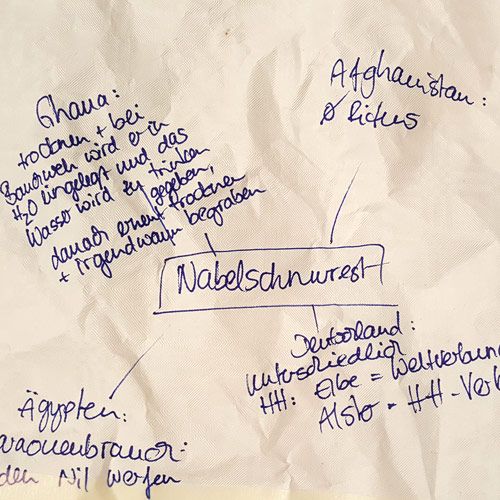 Ghana:
trocknen + bei
Bauchweh wird er in
H2O eingelegt und das
Wasser wird zu trinken
gegeben,
danach erneut trocknen
+ irgendwann begraben
Afghanistan:
Ø Ritus
Nabelschnurrest
Deutschland:
unterschiedlich
HH: Elbe = Weltverbun
Alster = HH-Verb
Ägypten:
araonenbrauch:
den Nil werfen